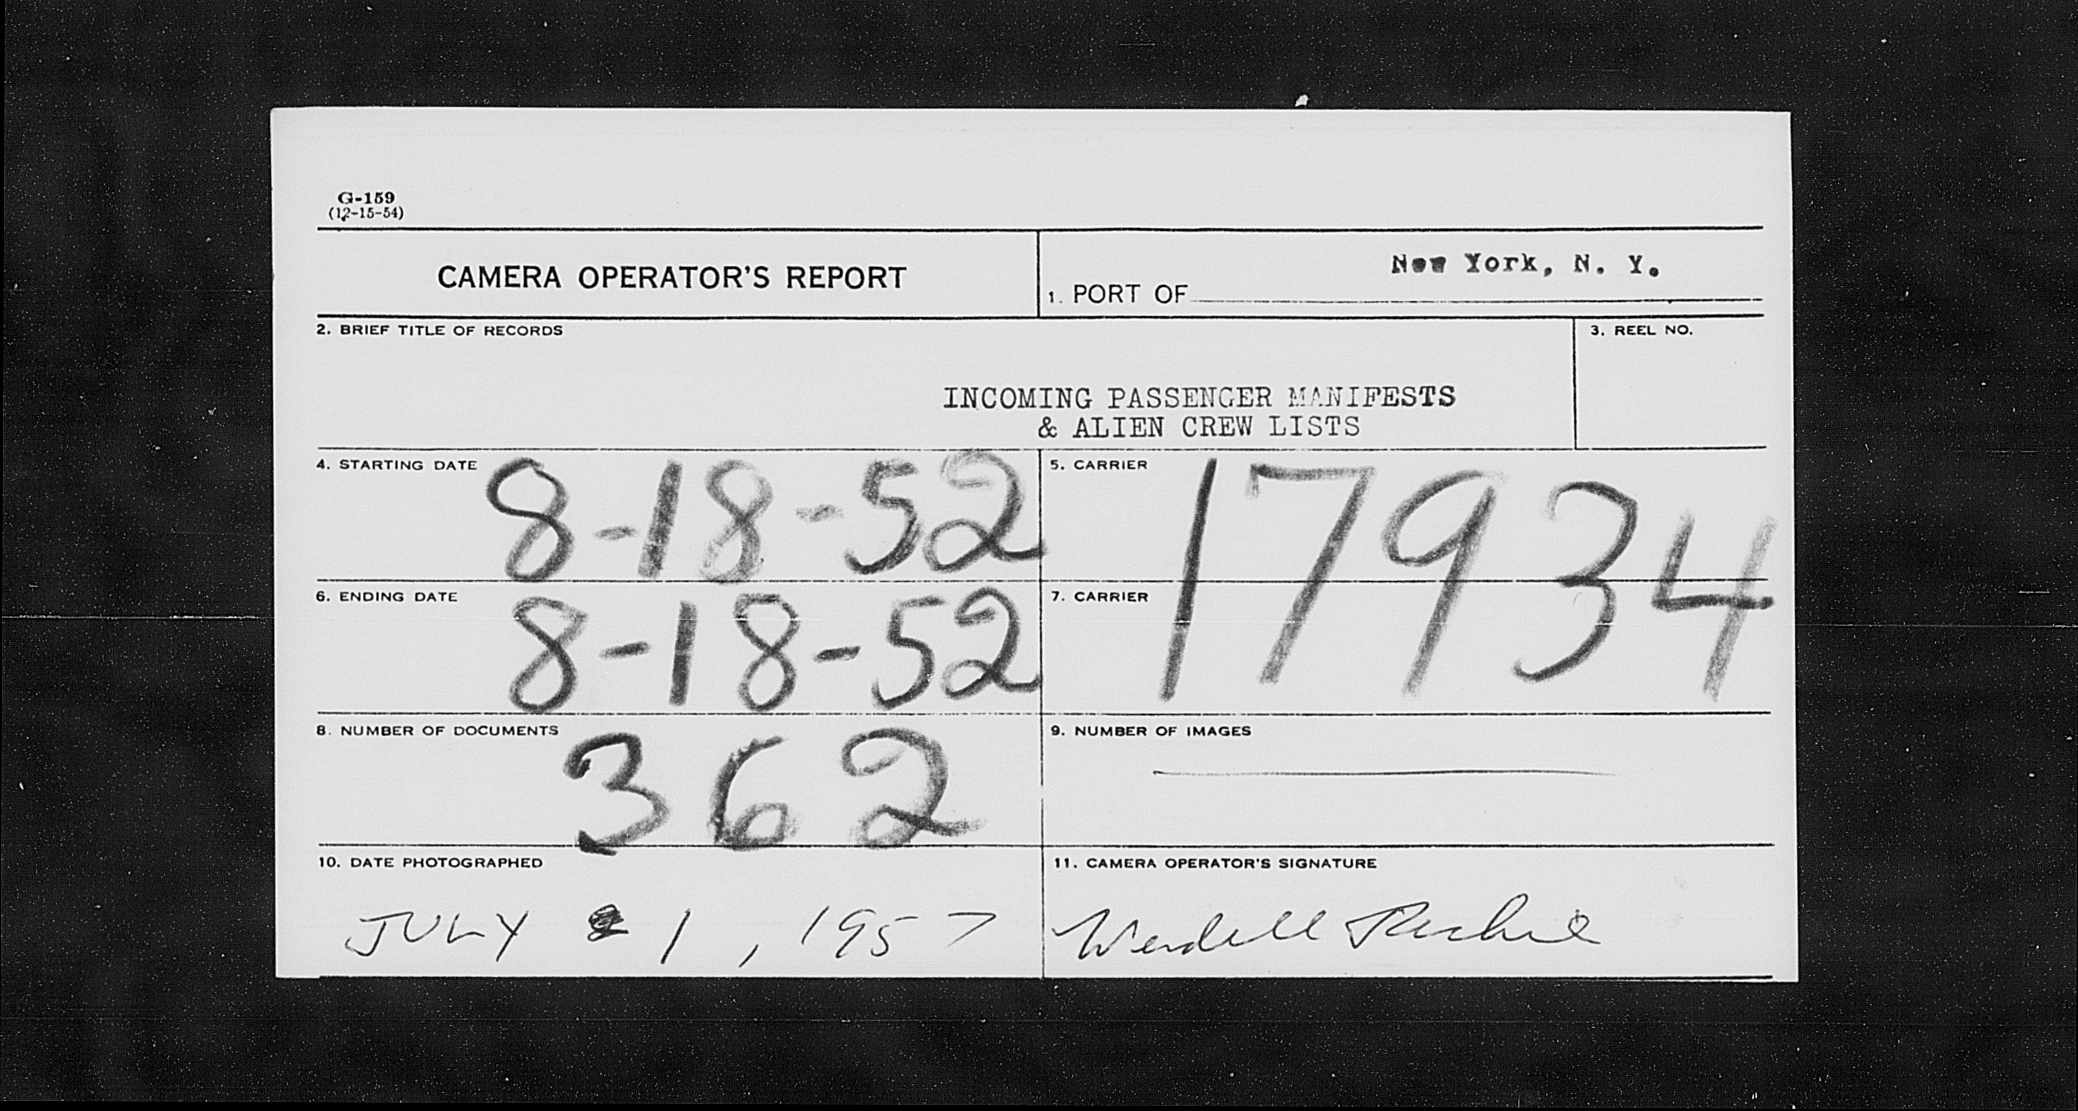 G-159
(12-15-54)
CAMERA OPERATOR'S REPORT
1. PORT OF New York, N. Y.
2. BRIEF TITLE OF RECORDS
3. REEL NO.
INCOMING PASSENGER MANIFESTS
& ALIEN CREW LISTS
4. STARTING DATE 8-18-52
5. CARRIER 17934
6. ENDING DATE 8-18-52
7. CARRIER
8. NUMBER OF DOCUMENTS 362
9. NUMBER OF IMAGES
10. DATE PHOTOGRAPHED
11. CAMERA OPERATOR'S SIGNATURE
JULY 1, 1957
Wendell